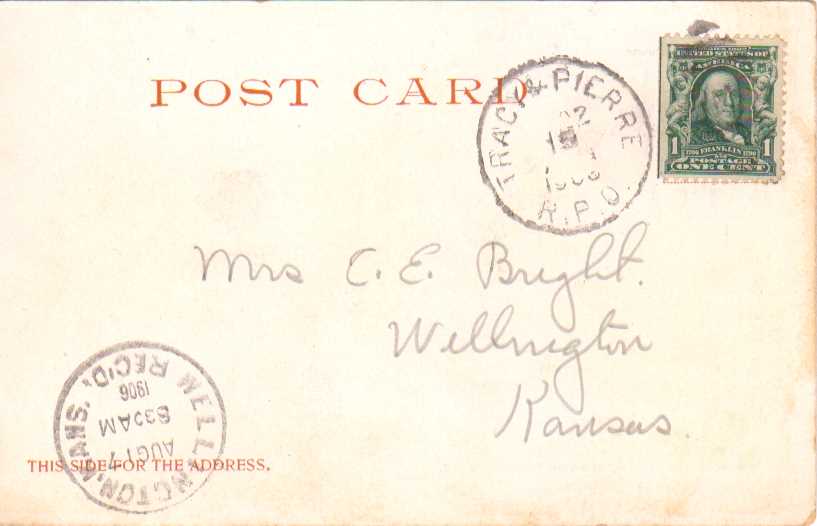 POST CARD
TRACY & PIERRE
R.P.O.
UNITED STATES OF
AMERICA
1 FRANKLIN 1
POSTAGE
ONE CENT
Mrs C. E. Bright.
Wellington
Kansas.
WELLINGTON, KANS. REC'D.
AUG 17
830 AM
1906
THIS SIDE FOR THE ADDRESS.